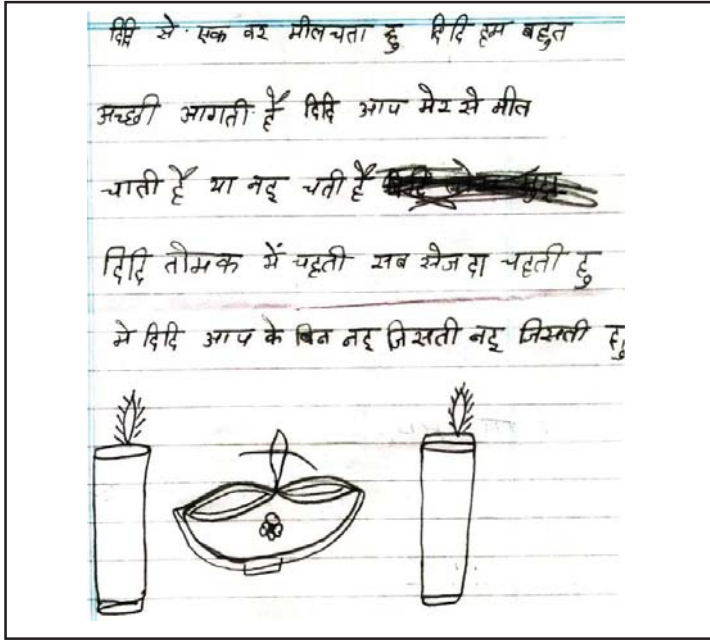 दिदि से एक वर मीलचता हु दिदि हम बहुत
अच्छी आगती है दिदि आप मेर से मील
चाती है या नइ चती है
दिदि तोमक में चहती सब सेजदा चहती हु
मे दिदि आप के बिन नइ जिसती नइ जिसती हु